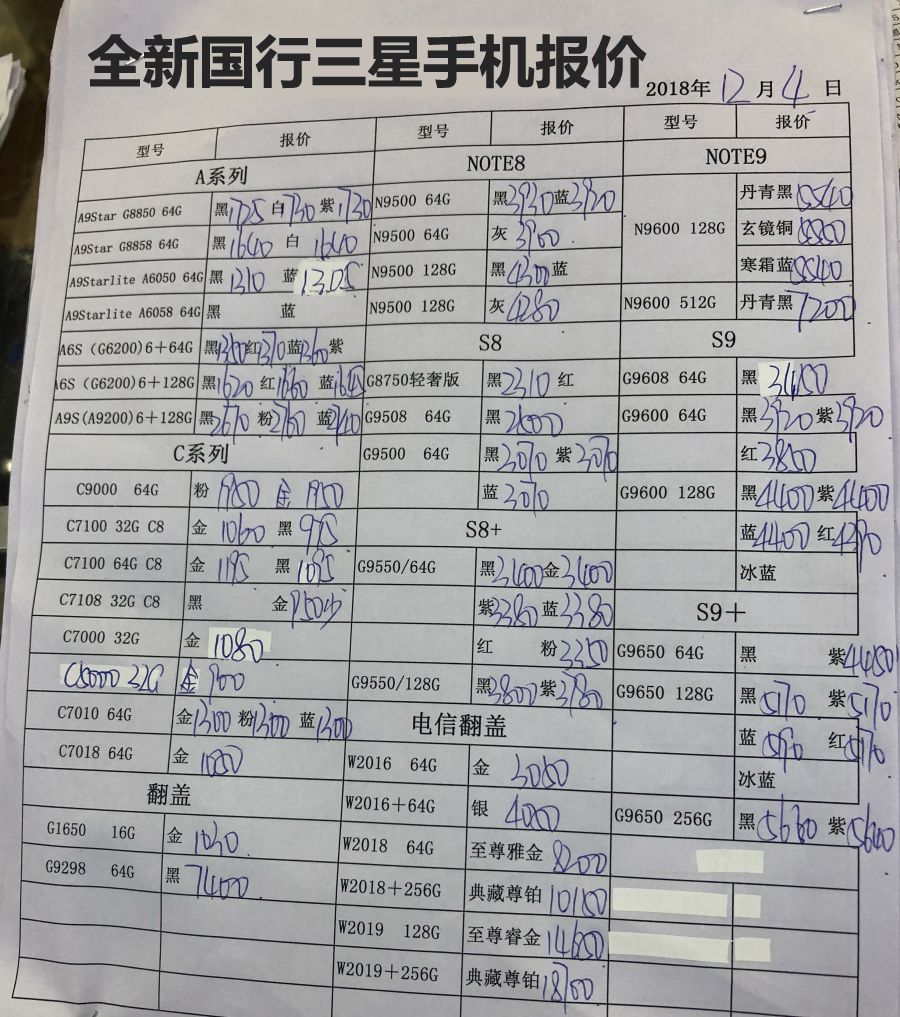 全新国行三星手机报价
2018年 12 月 4 日
型号 报价
A系列
A9Star G8850 64G 黑1725 白1730 紫1730
A9Star G8858 64G 黑1640 白 1640
A9Starlite A6050 64G 黑1310 蓝1305
A9Starlite A6058 64G 黑 蓝
A6S (G6200)6+64G 黑1350红1370蓝1360紫
A6S (G6200)6+128G 黑1620 红1660 蓝1645
A9S(A9200)6+128G 黑2670 粉2760 蓝
C系列
C9000 64G 粉 1950 金 1950
C7100 32G C8 金 1060 黑 975
C7100 64G C8 金 1195 黑 1095
C7108 32G C8 黑 金950少
C7000 32G 金 1080
C5000 32G 金 900
C7010 64G 金1300 粉1300 蓝1300
C7018 64G 金 1050
翻盖
G1650 16G 金 1030
G9298 64G 黑 7400
型号 报价
NOTE8
N9500 64G 黑3930蓝3920
N9500 64G 灰 3900
N9500 128G 黑4300蓝
N9500 128G 灰4280
S8
G8750轻奢版 黑2310 红
G9508 64G 黑2600
G9500 64G 黑3070 紫3070
蓝3070
S8+
G9550/64G 黑3400金3400
紫3380 蓝3380
红 粉3350
G9550/128G 黑3800紫3780
电信翻盖
W2016 64G 金 3050
W2016+64G 银 4000
W2018 64G 至尊雅金 8200
W2018+256G 典藏尊铂 10100
W2019 128G 至尊睿金 14650
W2019+256G 典藏尊铂 18700
型号 报价
NOTE9
N9600 128G 丹青黑 5540
玄镜铜
寒霜蓝5540
N9600 512G 丹青黑7200
S9
G9608 64G 黑 3450
G9600 64G 黑3920 紫3920
红3850
G9600 128G 黑4400紫4400
蓝4400 红4390
冰蓝
S9+
G9650 64G 黑 紫4450
G9650 128G 黑5170 紫5170
蓝5190 红5170
冰蓝
G9650 256G 黑5660 紫5600